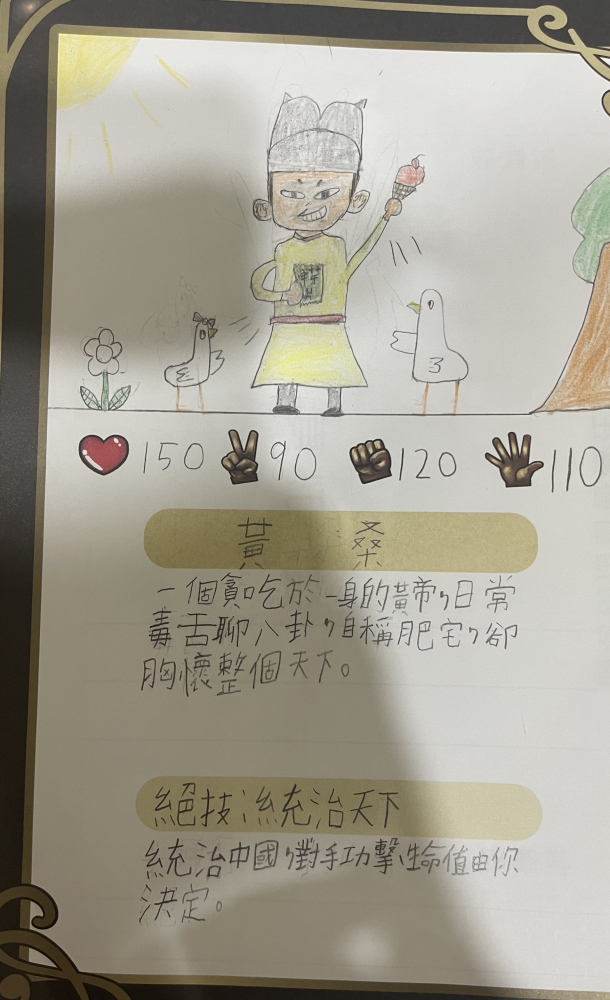 150 90 120 110
黃桑
一個貪吃於一身的黃帝，日常
毒舌聊八卦，自稱肥宅，卻
胸懷整個天下。
絕技：統治天下
統治中國，對手功擊、生命值由你
決定。